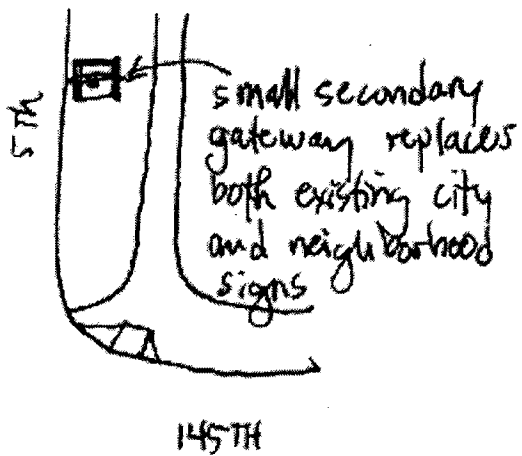 5TH
small secondary
gateway replaces
both existing city
and neighborhood
signs
145TH